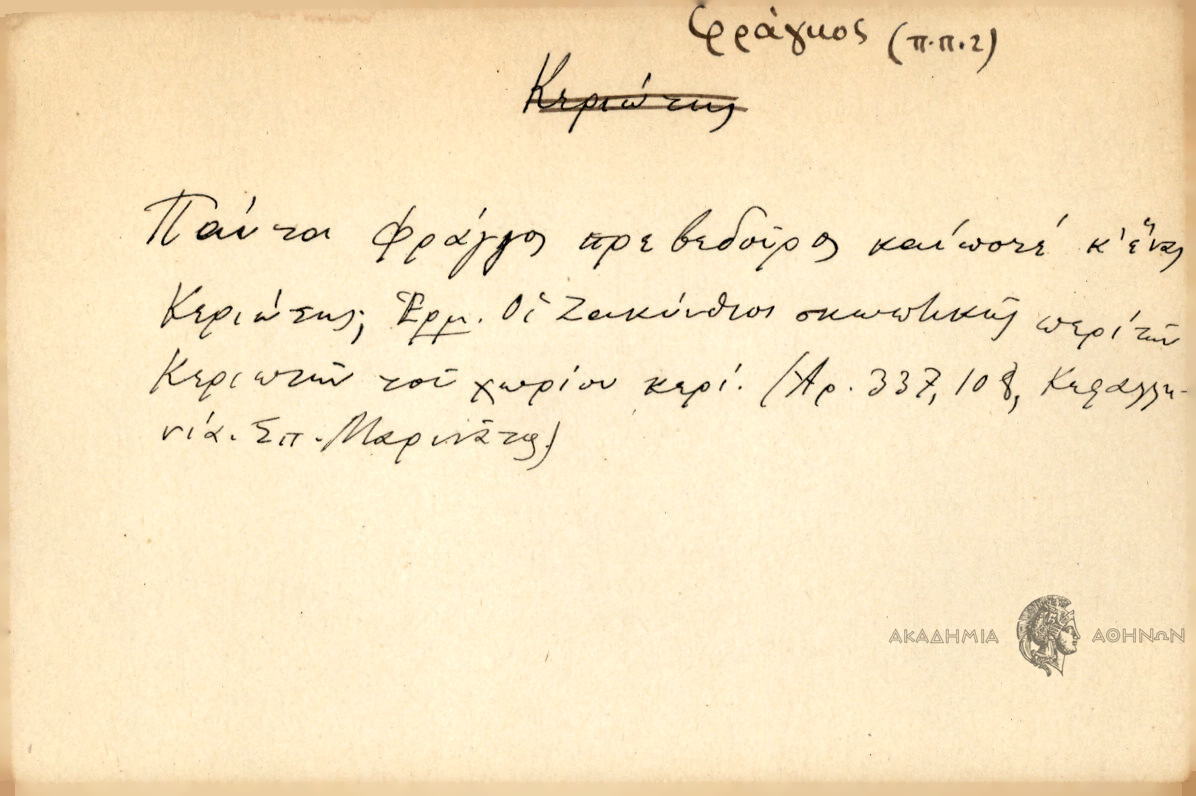 φράγκος (π.π.2)
Κεριώτης
Πάντα Φράγγος πρεβεδοῦρος καὶ ποτέ κ' ἕνας
Κεριώτης; Ἑρμ. Οἱ Ζακύνθιοι σκωπτικῶς περί τῶν
Κεριωτῶν τοῦ χωρίου κερί. (Αρ. 337, 108, Κεφαλλη-
νία. Σπ. Μαρινᾶτος)
ΑΚΑΔΗΜΙΑ ΑΘΗΝΩΝ